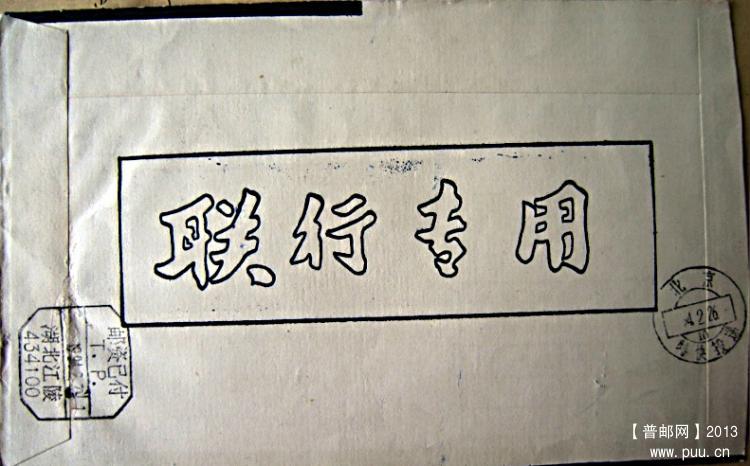 联行专用
邮资已付
T. P.
湖北江陵
434100
北京
【普邮网】2013
www.puu.cn